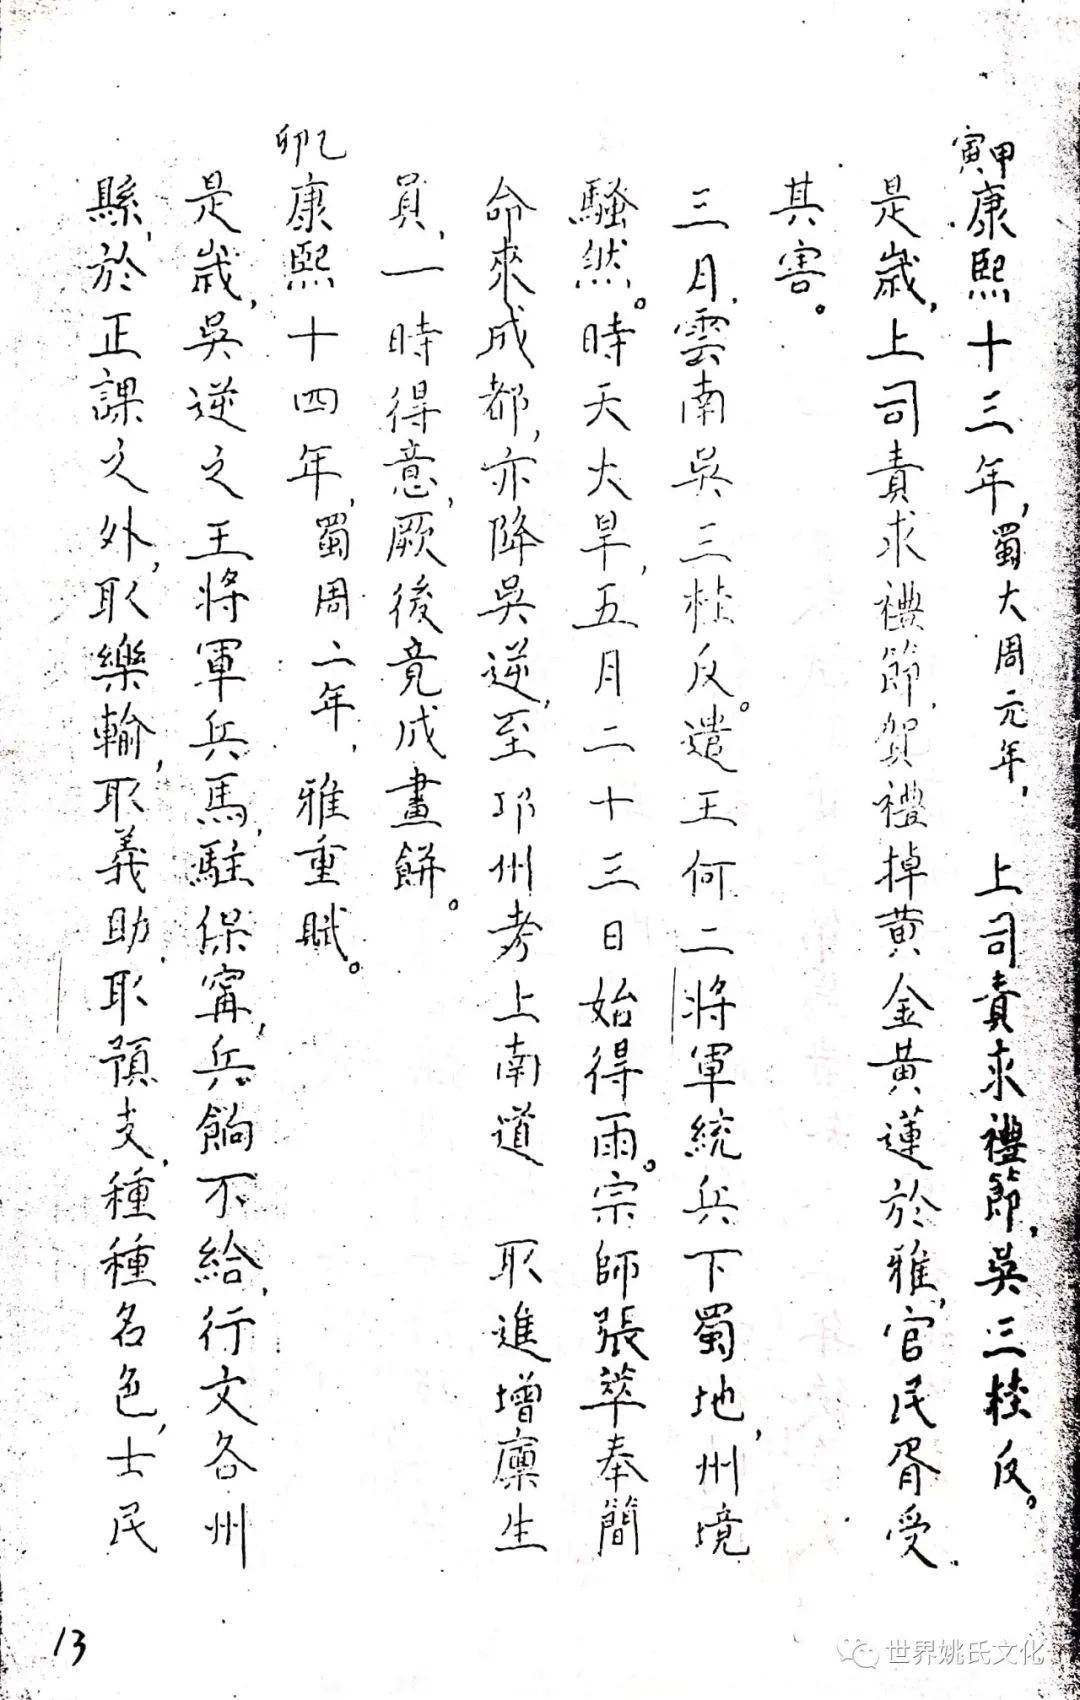 甲寅
康熙十三年,蜀大周元年, 上司責求禮節,吳三桂反。
是歲,上司責求禮節,賀禮掉黃金黃蓮於雅,官民胥受
其害。
三月,雲南吳三桂反。遣王何二將軍統兵下蜀地,州境
騷然。時天大旱,五月二十三日始得雨。宗師張萃奉簡
命來成都,亦降吳逆,至邛州考上南道 取進增廩生
員,一時得意,厥後竟成畫餅。
乙卯
康熙十四年,蜀周二年,雅重賦。
是歲,吳逆之王將軍兵馬,駐保甯,兵餉不給,行文各州
縣,於正課之外,取樂輸,取義助,取預支,種種名色,士民
13
世界姚氏文化